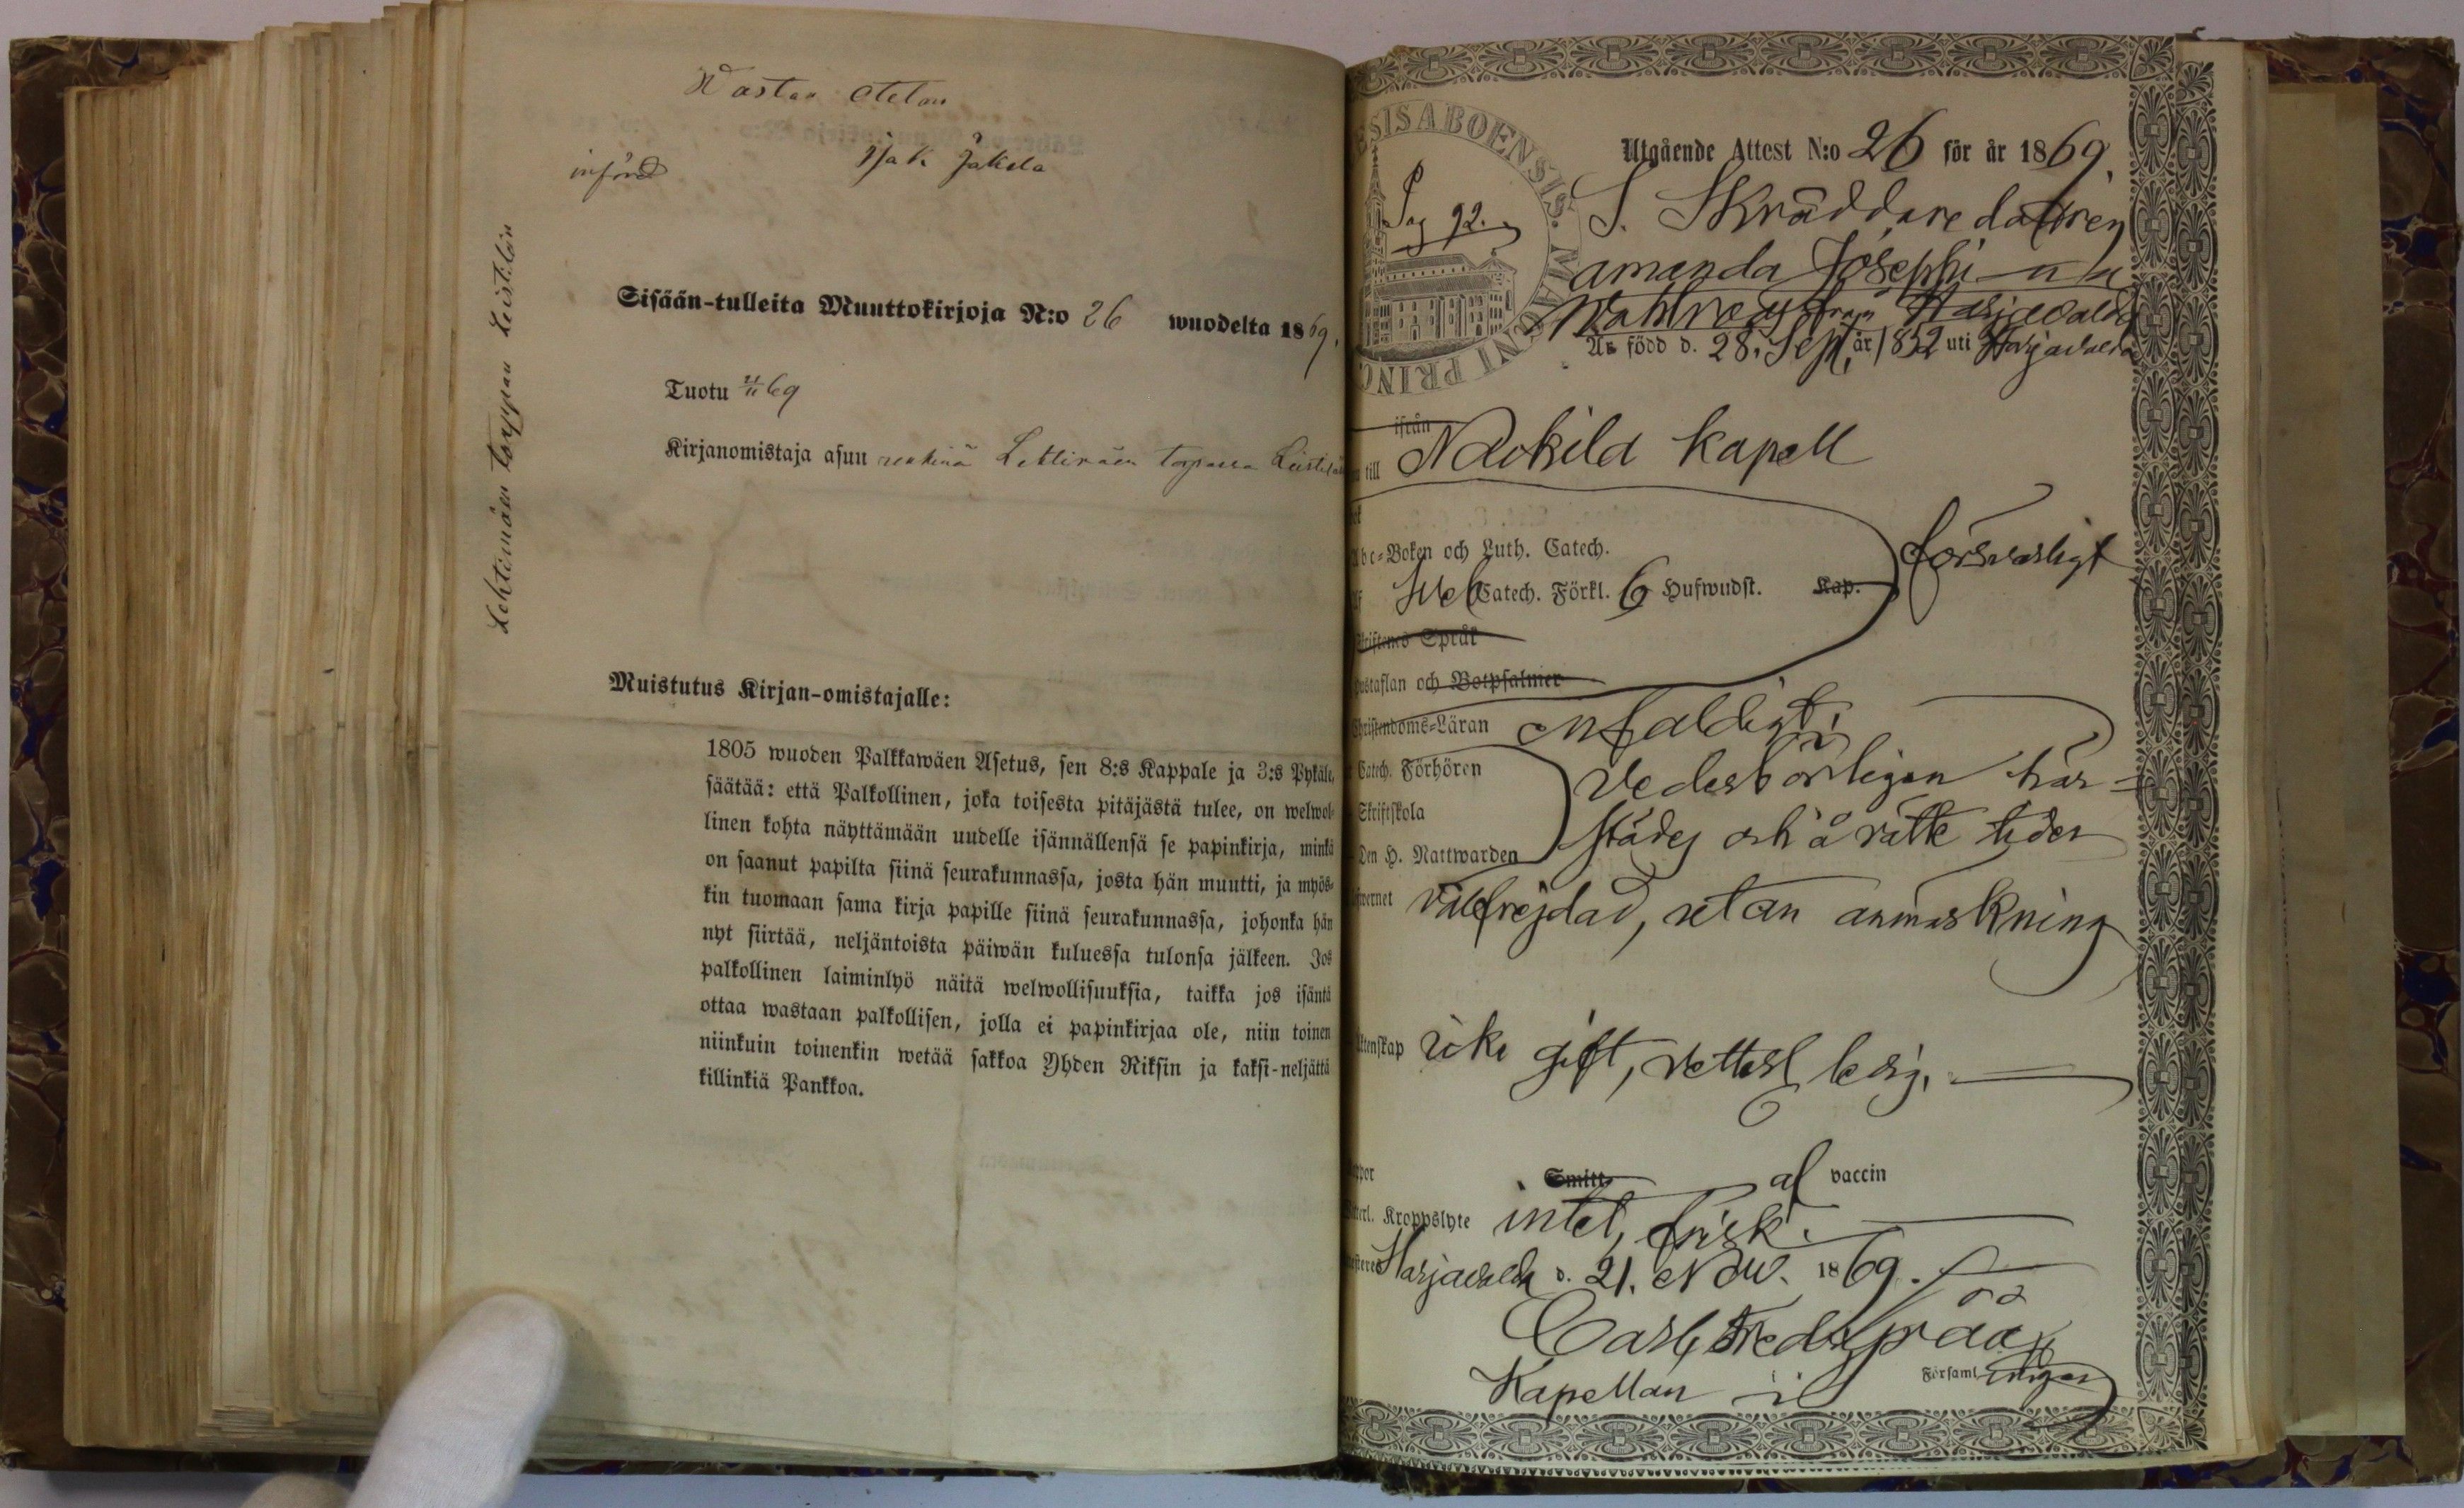 Wastaa Otetan
införd
Isak Jakola
Lehtimäen torppan Leistilän
Sisään-tulleita Muuttokirjoja N:o 26 wuodelta 1869.
Tuotu 21/11 69
Kirjanomistaja asuu renkinä Lehtimäen torpassa Leistilän
Muistutus Kirjan-omistajalle:
1805 wuoden Palkkawäen Asetus, sen 8:s Kappale ja 3:s Pykäle,
säätää: että Palkollinen, joka toisesta pitäjästä tulee, on welwol-
linen kohta näyttämään uudelle isännällensä se papinkirja, minkä
on saanut papilta siinä seurakunnassa, josta hän muutti, ja myös-
kin tuomaan sama kirja papille siinä seurakunnassa, johonka hän
nyt siirtää, neljäntoista päiwän kuluessa tulonsa jälkeen. Jos
palkollinen laiminlyö näitä welwollisuuksia, taikka jos isäntä
ottaa wastaan palkollisen, jolla ei papinkirjaa ole, niin toinen
niinkuin toinenkin wetää sakkoa Yhden Riksin ja kaksi-neljättä
killinkiä Pankkoa.
SIS ABOENSIS. MAGNI PRINC
Pag 92.
Utgående Attest N:o 26 för år 1869.
S. Skräddaredottren
Amanda Josephina
från Harjavalda
Är född d. 28. Sept. år 1852 uti Harjavalda
ifrån
till Nackila Kapell
Abc-Boken och Luth. Catech.
Catech. Förkl. 6 Hufwudst. Kap.
försvarligt
Språk
Hustaflan och Botpsalmer
Christendoms-Läran enfaldigt,
Catech. Förhören
Skriftskola
Den H. Nattwarden
vederbörligen här-
städes och å rätte tider
välfrejdad, utan anmärkning
icke gift, ledig.
Smitt. af vaccin
Kroppslyte intet, frisk.
Harjavalda d. 21. Nov. 1869.
Carl Fredr
Kapellan i Församlingen